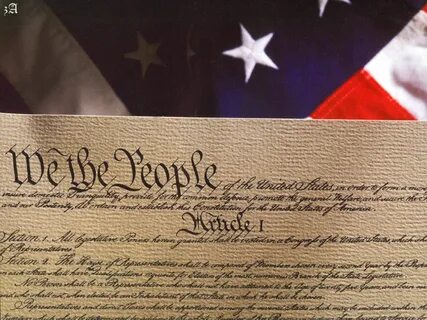 zA
We the People of the United States, in order to form a more
insure domestic Tranquility, provide for the common defence, promote the general Welfare, and secure the
and our Posterity, do ordain and establish this Constitution for the United States of America.
Article I
Section 1. All legislative Powers herein granted shall be vested in a Congress of the United States, which shall
Section 2. The House of Representatives shall be composed of Members chosen every second Year by the People
in each State shall have Qualifications requisite for Electors of the most numerous Branch of the State Legislature.
No Person shall be a Representative who shall not have attained to the Age of twenty five Years and been
and who shall not, when elected, be an Inhabitant of that State in which he shall be chosen.
Representatives and direct Taxes shall be apportioned among the several States which may be included